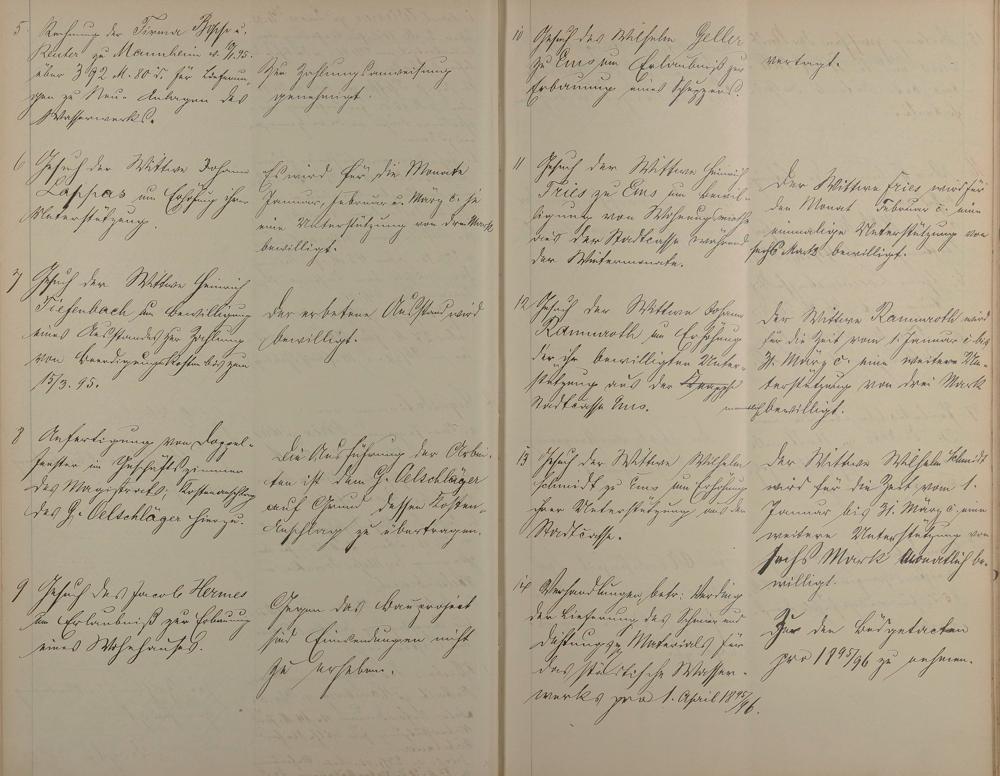 5 Rechnung der Firma Bopp u.
Reuter zu Mannheim v.
über 392 M. 80 d. für Lieferun-
gen zu Neu-Anlagen des
Wasserwerks.
Zur Zahlungsanweisung
genehmigt.
6 Gesuch der Wittwe Johann
Lappas um Erhöhung ihrer
Unterstützung.
Es wird für die Monate
Januar, Februar u. März c. je
eine Unterstützung von drei Mark
bewilligt.
7 Gesuch der Wittwe Heinrich
Tiefenbach um Bewilligung
eines Ausstandes zur Zahlung
von Beerdigungskosten bis zum
15/3. 95.
Der erbetene Ausstand wird
bewilligt.
8 Anfertigung von Doppel-
fenster im Geschäftszimmer
des Magistrats, Kostenanschlag
des G. Oelschläger hierzu.
Die Ausführung der Arbei-
ten ist dem G. Oelschläger
auf Grund dessen Kosten-
Anschlag zu übertragen.
9 Gesuch des Jacob Hermes
um Erlaubniß zur Erbauung
eines Wohnhauses.
Gegen das Bauproject
sind Einwendungen nicht
zu erheben.
10 Gesuch des Wilhelm Geller
zu Ems um Erlaubniß zur
Erbauung eines Schuppens.
vertagt.
11 Gesuch der Wittwe Heinrich
Fries zu Ems um Bewil-
ligung von Wohnungsmiethe
aus der Stadtcasse während
der Wintermonate.
Der Wittwe Fries wird für
den Monat Februar c. eine
einmalige Unterstützung von
sechs Mark bewilligt.
12 Gesuch der Wittwe Johann
Rammroth um Erhöhung
der ihr bewilligten Unter-
stützung aus der
Stadtcasse Ems.
Der Wittwe Rammroth wird
für die Zeit vom 1. Januar c. bis
31. März c. eine weitere Un-
terstützung von drei Mark
monatlich bewilligt.
13 Gesuch der Wittwe Wilhelm
Schmidt zu Ems um Erhöhung
ihrer Unterstützung aus der
Stadtcasse.
Der Wittwe Wilhelm Schmidt
wird für die Zeit vom 1.
Januar bis 31. März c. eine
weitere Unterstützung von
sechs Mark monatlich be-
willigt.
14 Verhandlungen, betr: Verding
der Lieferung des Schmier und
Dichtungs Materials für
das städtische Wasser-
werks pro 1. April 1895/96.
Zu den Büdgetacten
pro 1895/96 zu nehmen.